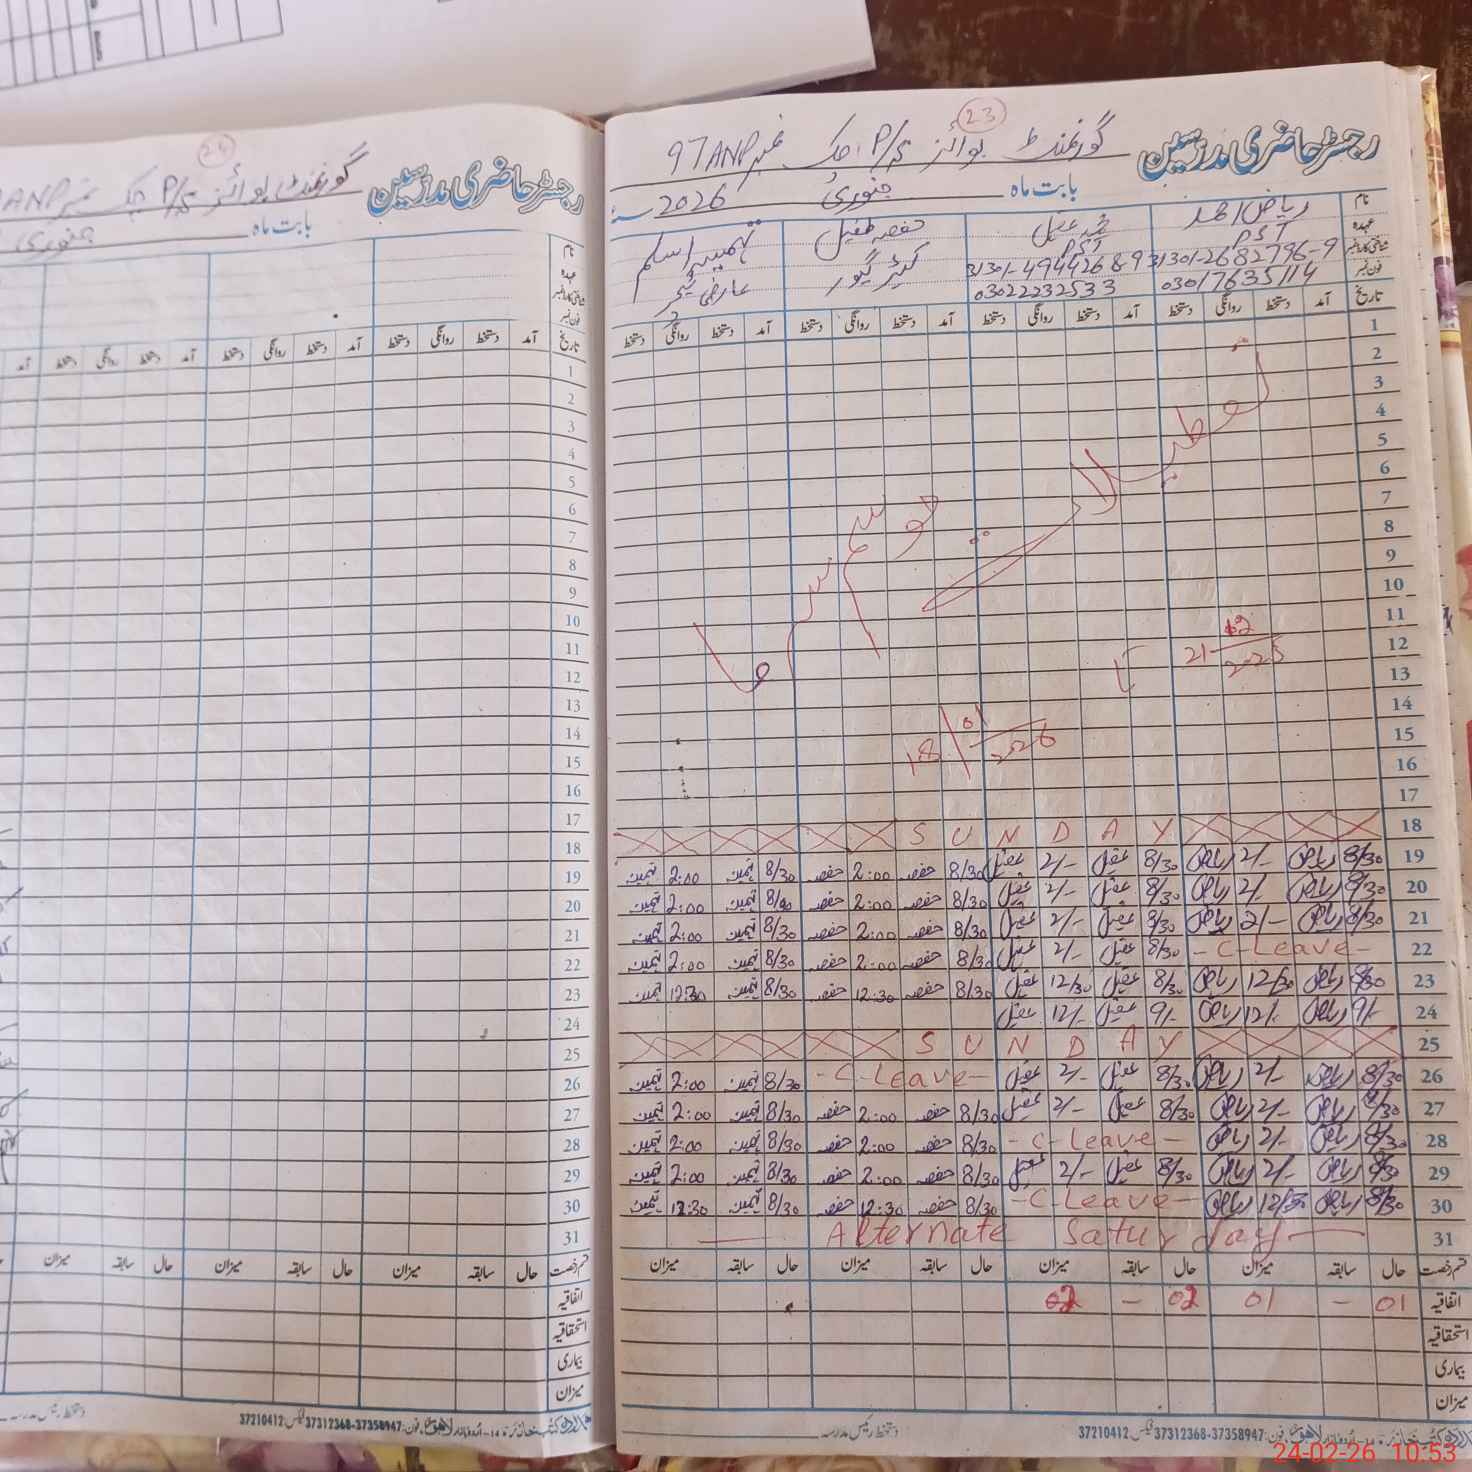 23
رجسٹر حاضری مدرسین گورنمنٹ بوائز P/S چک نمبر 97ANP
بابت ماہ جنوری 2026ء
نام ریاض احمد محمد عقیل حفصہ طفیل تہمینہ اسلم
عہدہ PST PST کیئر گیور عارضی ٹیچر
شناختی کارڈ نمبر 31301-2682796-9 31301-4944268-9
فون نمبر 03017635114 03022232533
تاریخ آمد دستخط روانگی دستخط آمد دستخط روانگی دستخط آمد دستخط روانگی دستخط آمد دستخط روانگی دستخط
1
2
3
4
5
6
7
8
9
10
11
12
13
14
15
16
17
تعطیلات موسم سرما
21-12-2025 تا
18/01/2026
18 SUNDAY
19 8/30 ریاض 2/- ریاض 8/30 عقیل 2/- عقیل 8/30 حفصہ 2:00 حفصہ 8/30 تہمینہ 2:00 تہمینہ
20 8/30 ریاض 2/- ریاض 8/30 عقیل 2/- عقیل 8/30 حفصہ 2:00 حفصہ 8/30 تہمینہ 2:00 تہمینہ
21 8/30 ریاض 2/- ریاض 8/30 عقیل 2/- عقیل 8/30 حفصہ 2:00 حفصہ 8/30 تہمینہ 2:00 تہمینہ
22 -C-Leave- 8/30 عقیل 2/- عقیل 8/30 حفصہ 2:00 حفصہ 8/30 تہمینہ 2:00 تہمینہ
23 8/30 ریاض 12/30 ریاض 8/30 عقیل 12/30 عقیل 8/30 حفصہ 12:30 حفصہ 8/30 تہمینہ 12:30 تہمینہ
24 9/- ریاض 12/- ریاض 9/- عقیل 12/- عقیل
25 SUNDAY
26 8/30 ریاض 2/- ریاض 8/30 عقیل 2/- عقیل -C-Leave- 8/30 تہمینہ 2:00 تہمینہ
27 8/30 ریاض 2/- ریاض 8/30 عقیل 2/- عقیل 8/30 حفصہ 2:00 حفصہ 8/30 تہمینہ 2:00 تہمینہ
28 8/30 ریاض 2/- ریاض -C-Leave- 8/30 حفصہ 2:00 حفصہ 8/30 تہمینہ 2:00 تہمینہ
29 8/30 ریاض 2/- ریاض 8/30 عقیل 2/- عقیل 8/30 حفصہ 2:00 حفصہ 8/30 تہمینہ 2:00 تہمینہ
30 8/30 ریاض 12/30 ریاض -C-Leave- 8/30 حفصہ 12:30 حفصہ 8/30 تہمینہ 12:30 تہمینہ
31 Alternate Saturday
قسم رخصت حال سابقہ میزان حال سابقہ میزان حال سابقہ میزان حال سابقہ میزان
اتفاقیہ 01 - 01 02 - 02
استحقاقیہ
بیماری
میزان
دستخط رئیس مدرسہ
اُردو بازار لاہور، فون: 37358947-37312368 فیکس 37210412
24
رجسٹر حاضری مدرسین گورنمنٹ بوائز P/S چک نمبر ANP
بابت ماہ
نام
عہدہ
شناختی کارڈ نمبر
فون نمبر
تاریخ آمد دستخط روانگی دستخط آمد دستخط روانگی دستخط آمد دستخط روانگی دستخط آمد
1
2
3
4
5
6
7
8
9
10
11
12
13
14
15
16
17
18
19
20
21
22
23
24
25
26
27
28
29
30
31
قسم رخصت حال سابقہ میزان حال سابقہ میزان حال سابقہ میزان
اتفاقیہ
استحقاقیہ
بیماری
میزان
دستخط رئیس مدرسہ
اُردو بازار لاہور، فون: 37358947-37312368 فیکس 37210412
24-02-26 10:53